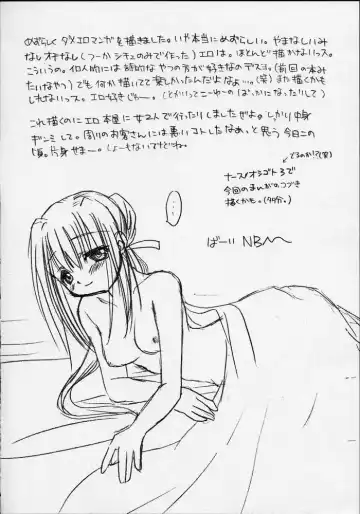 めずらしくダメエロマンガを描きました。いや本当にめずらしい。やまなしいみ
なしオチなし(つーかシチュのみで作った)エロは。ほとんど描かないっス。
こういうの。個人的には
やつの方が好きなのデスヨ。(前回の本み
たいなやつ)でも何か描いてて楽しかったんだよなぁ…。(笑)また描くかも
しれないっス。エロ好きじゃー。
これ描くのにエロ本屋に女2人で行ったりしましたぜよ。しっかり中身
ギンミして。周りのお客さんには悪いコトしたなぁっと思う今日この
頃。片身せまー。
でるのか!?(笑)
ナース
3で
今回のまんがのつづき
描くかも。(多分。)
…
ばーい NB